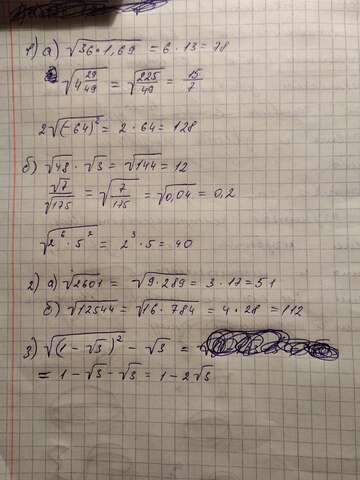 1) а) √(36·1,69) = 6·13 = 78
√(4 29/49) = √(225/49) = 15/7
2√(-64)² = 2·64 = 128
б) √48 · √3 = √144 = 12
√7/√175 = √(7/175) = √0,04 = 0,2
√(2⁶·5²) = 2³·5 = 40
2) а) √2601 = √(9·289) = 3·17 = 51
б) √12544 = √(16·784) = 4·28 = 112
3) √((1-√3)²) - √3 =
= 1-√3-√3 = 1-2√3